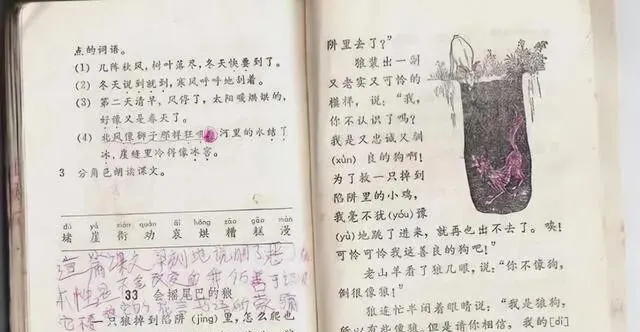 点的词语。
(1) 几阵秋风，树叶落尽，冬天快要到了。
(2) 冬天说到就到，寒风呼呼地刮着。
(3) 第二天清早，风停了，太阳暖烘烘的，
好像又是春天了。
(4) 北风像狮子那样狂吼，河里的水结了
冰，崖缝里冷得像冰窖。
3 分角色朗读课文。
dǔ yá xián quàn āi hōng zāo gāo màn
堵 崖 衔 劝 哀 烘 糟 糕 漫
这篇课文 地说明了
本性是
33 会摇尾巴的狼
只狼掉到陷阱 (jǐng) 里，怎么爬也
阱里去了？”
狼装出一副
又老实又可怜的
模样，说：“我，
你不认识了吗？
我是又忠诚又驯
(xùn) 良的狗啊！
为了救一只掉到
陷阱里的小鸡，
我毫不犹(yóu)豫
(yù)地跳了进来，就再也出不去了。唉！
可怜可怜我这善良的狗吧！”
老山羊看了狼几眼，说：“你不像狗，
倒很像狼！”
狼连忙半闭着眼睛说：“我是狼狗，
所以有些像狼。但是请你相信，我的[dì]